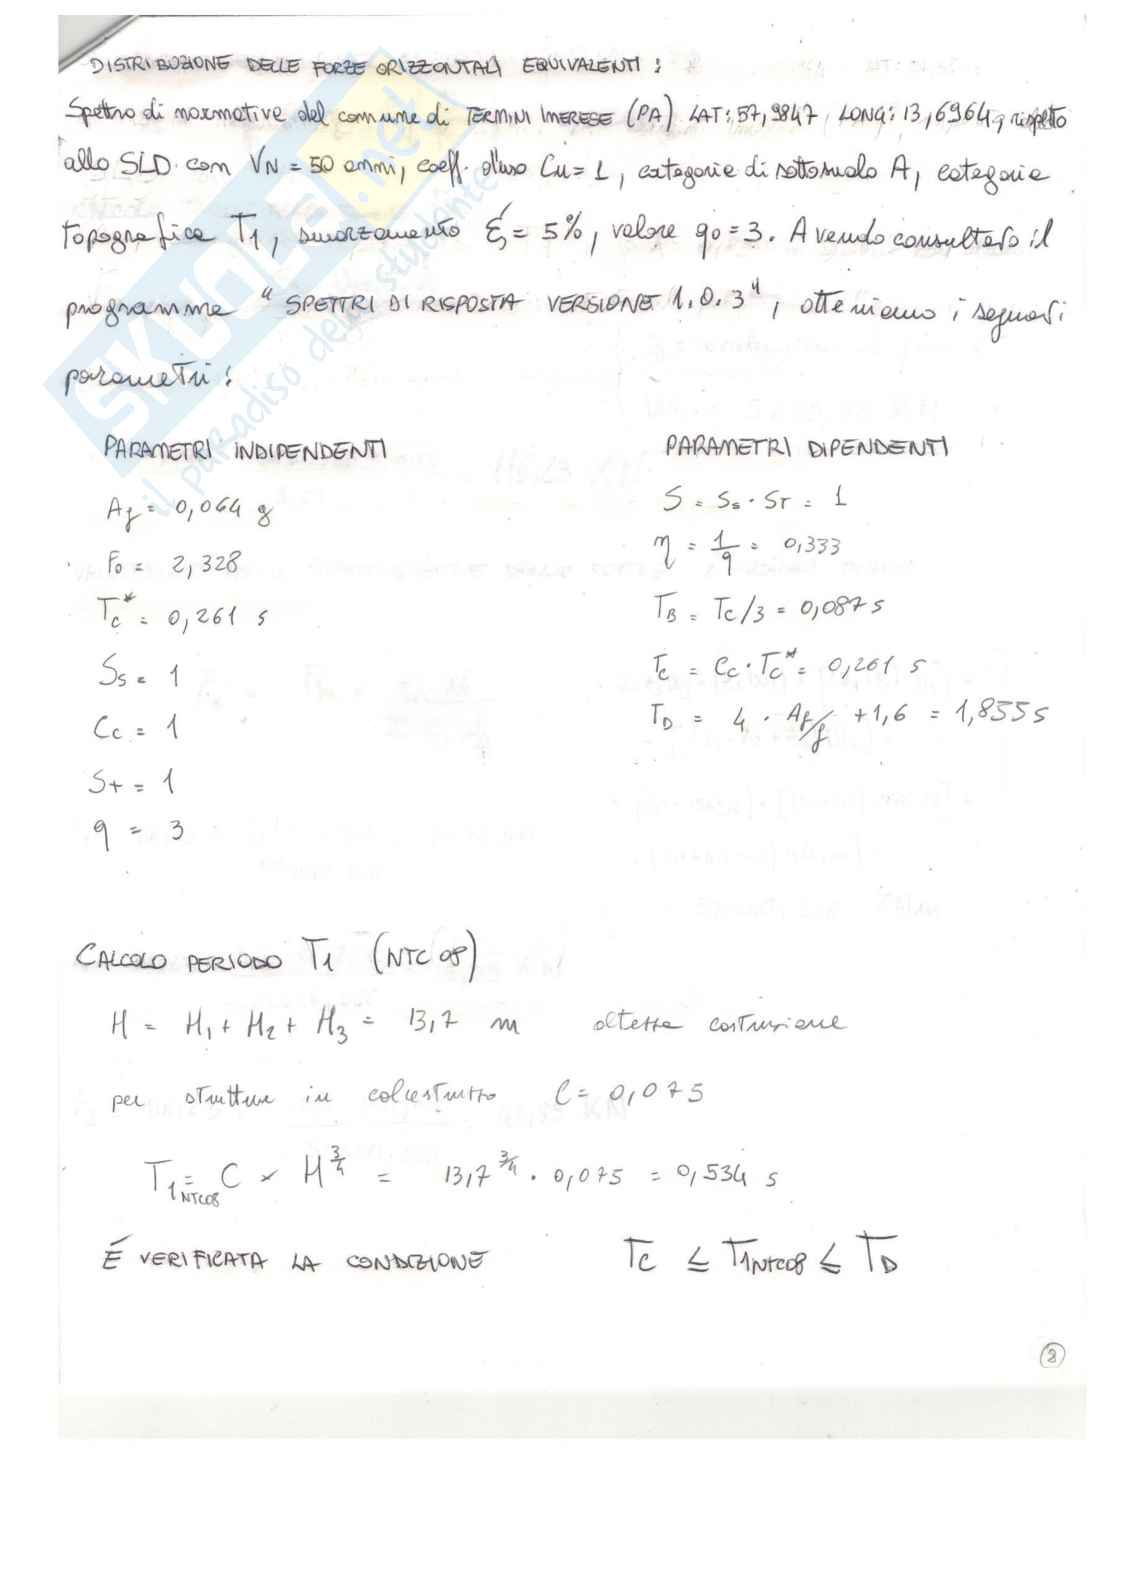 DISTRIBUZIONE DELLE FORZE ORIZZONTALI EQUIVALENTI :
Spettro di normative del comune di TERMINI IMERESE (PA) LAT: 57,9847, LONG: 13,6964, rispetto
allo SLD con VN = 50 anni, coeff. d'uso Cu = 1, categorie di sottosuolo A, categorie
topografica T1, smorzamento ξ = 5%, valore q0 = 3. Avendo consultato il
programma "SPETTRI DI RISPOSTA VERSIONE 1.0.3", otteniamo i seguenti
parametri :
PARAMETRI INDIPENDENTI
Ag = 0,064 g
F0 = 2,328
Tc* = 0,261 s
Ss = 1
Cc = 1
St = 1
q = 3
PARAMETRI DIPENDENTI
S = Ss · ST = 1
η = 1/q = 0,333
TB = TC/3 = 0,087 s
TC = CC · TC* = 0,261 s
TD = 4 · Ag/g + 1,6 = 1,855 s
CALCOLO PERIODO T1 (NTC 08)
H = H1 + H2 + H3 = 13,7 m altezza costruzione
per strutture in calcestruzzo C = 0,075
T1NTC08 = C × H^3/4 = 13,7^3/4 · 0,075 = 0,534 s
É VERIFICATA LA CONDIZIONE TC ≤ T1NTC08 ≤ TD
8
SKUOLA.net
il paradiso dello studente